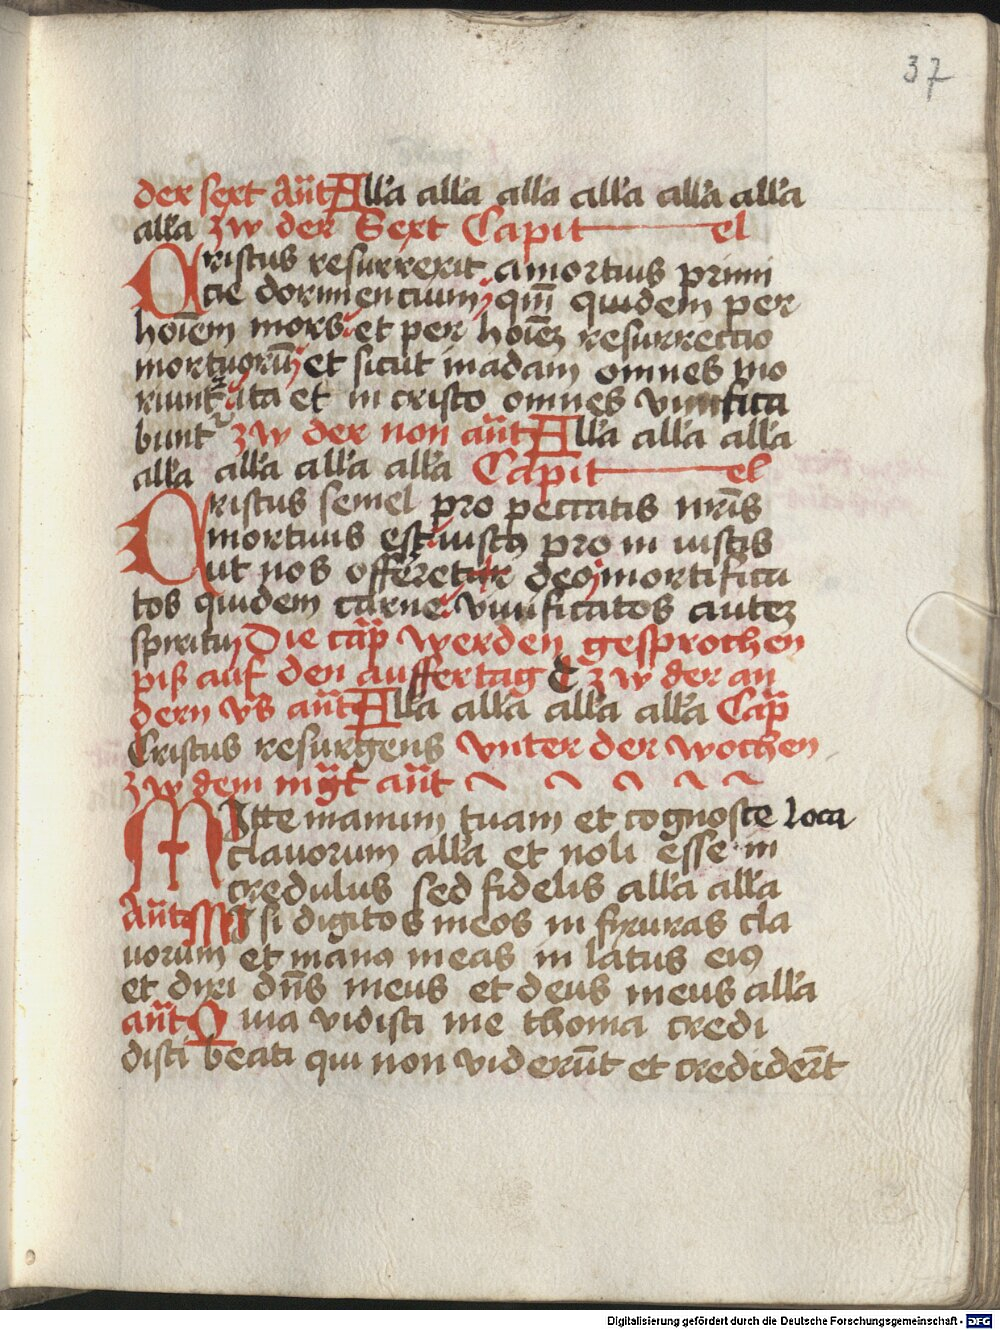 37
der sext An̄t All'a all'a all'a all'a all'a all'a
all'a zw der Sext Capit el
Cristus resurrexit a mortius primi
cie dormiencium qm̄ quidem per
hoīem mors et per hoīez resurrectio
mortuorū et sicut in adam omnes mo
riunt᷑ ita et in cristo omnes viuifica
bunt᷑ zw der non an̄t All'a all'a all'a
all'a all'a all'a all'a Capit el
Cristus semel pro peccatis nr̄is
mortuus est iustus pro in iustis
ut nos offeret deo mortifica
tos quidem carne viuificatos autez
spiritu Die cap̄ werden gesprochen
piß auf den auffertag C zw der an
dern vs an̄t All'a all'a all'a all'a Cap̄
Cristus resurgens vnter der wochen
zw dem mg̅t an̄t
Mitte manum tuam et cognosce loca
clauorum all'a et noli esse in
credulus sed fidelis all'a all'a
An̄t Misi digitos meos in fixuras cla
uorum et manꝰ meas in latus eiꝰ
et dixi dn̄s meus et deus meus all'a
an̄t Quia vidisti me thoma credi
disti beati qui non viderūt et credider̄t
Digitalisierung gefördert durch die Deutsche Forschungsgemeinschaft - DFG